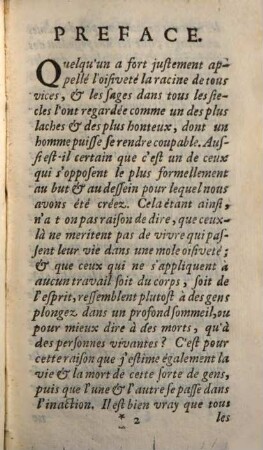 PREFACE.
Quelqu'un a fort justement ap-
pellé l'oisiveté la racine de tous
vices, & les sages dans tous les sie-
cles l'ont regardée comme un des plus
laches & des plus honteux, dont un
homme puisse se rendre coupable. Aus-
si est-il certain que c'est un de ceux
qui s'opposent le plus formellement
au but & au dessein pour lequel nous
avons été créez. Cela étant ainsi,
n'a t on pas raison de dire, que ceux-
là ne meritent pas de vivre qui pas-
sent leur vie dans une mole oisiveté;
& que ceux qui ne s'appliquent à
aucun travail soit du corps, soit de
l'esprit, ressemblent plutost à des gens
plongez dans un profond sommeil, ou
pour mieux dire à des morts, qu'à
des personnes vivantes? C'est pour
cette raison que j'estime également la
vie & la mort de cette sorte de gens,
puis que l'une & l'autre se passe dans
l'inaction. Il est bien vray que tous
* 2 les